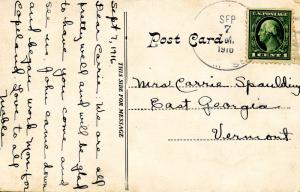 Sept 7, 1916
Dear Carrie, We are all
pretty well and will be glad
to have you come and
see us. John came down
and began work Mon. for
Copeland. Love to all
Mable
THIS SIDE FOR MESSAGE
Post Card
SEP
7
1916
1 CENT 1
Mrs. Carrie Spaulding
East Georgia
Vermont